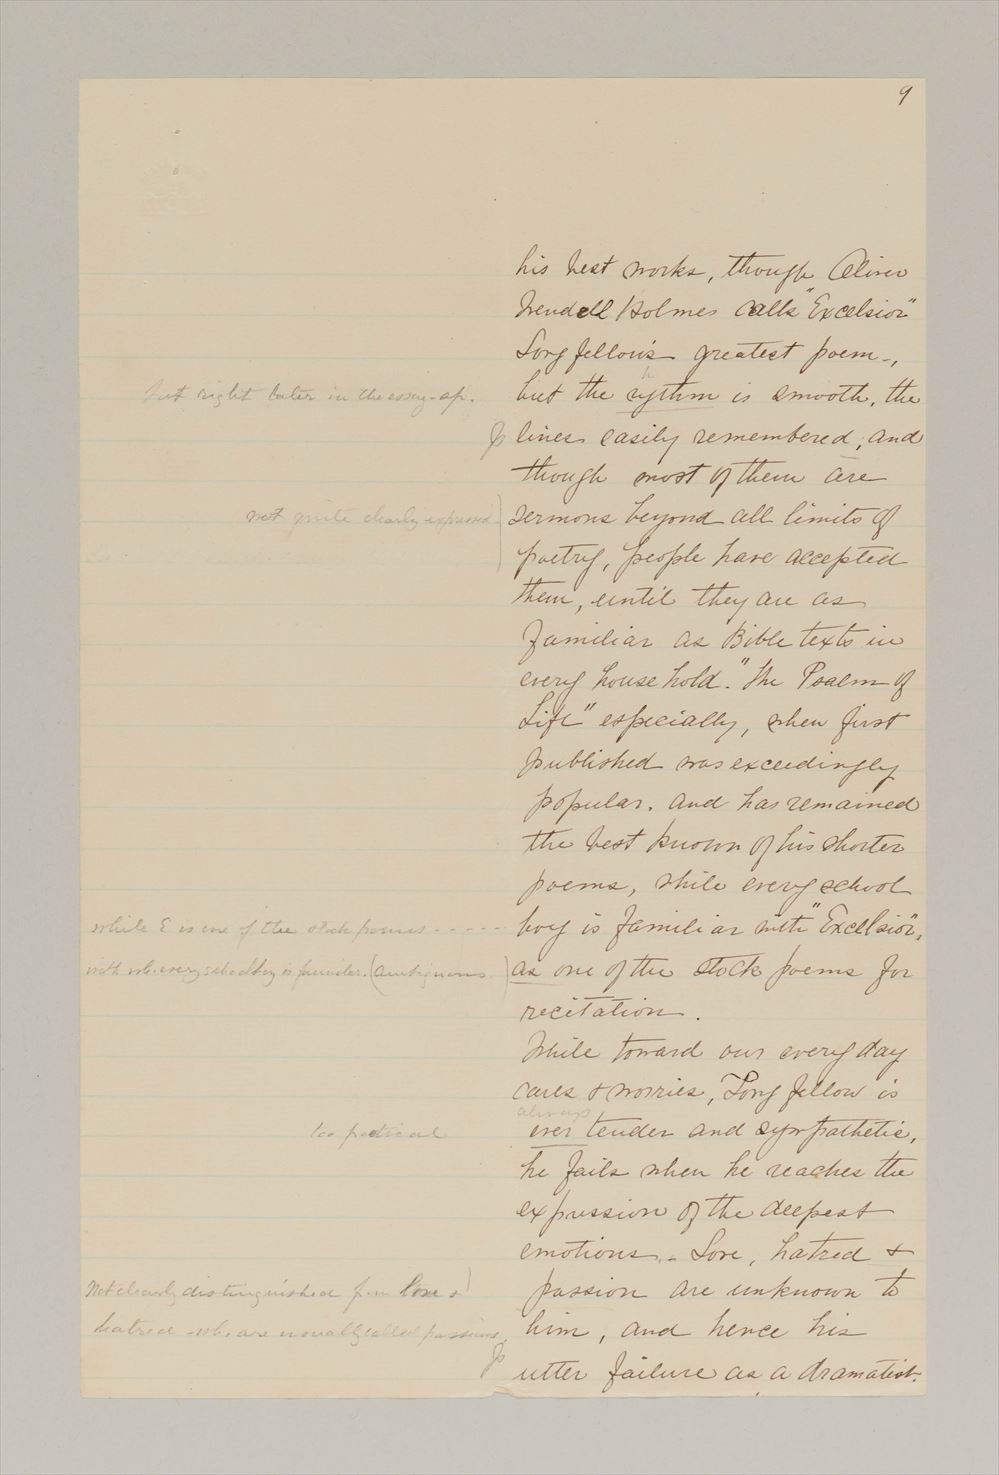 9
his best works, though Oliver
Wendell Holmes calls "Excelsior"
Longfellow's greatest poem -,
but right later in the essay - sp.
h
but the rythm is smooth, the
lines easily remembered; and
though most of them are
not quite clearly expressed
sermons beyond all limits of
poetry, people have accepted
them, until they are as
familiar as Bible texts in
every household. "The Psalm of
Life" especially, when first
published was exceedingly
popular. and has remained
the best known of his shorter
poems, while every school
while E is one of the stock poems - - - - -
boy is familiar with "Excelsior",
with wh. every schoolboy is familiar. (ambiguous.)
as one of the stock poems for
recitation.
While toward our every day
cares & worries, Longfellow is
always
too poetical
ever tender and sympathetic,
he fails when he reaches the
expression of the deepest
emotions. Love, hatred &
Not clearly distinguished from love &
passion are unknown to
hatred - wh. are usually called passions,
him, and hence his
utter failure as a dramatist.